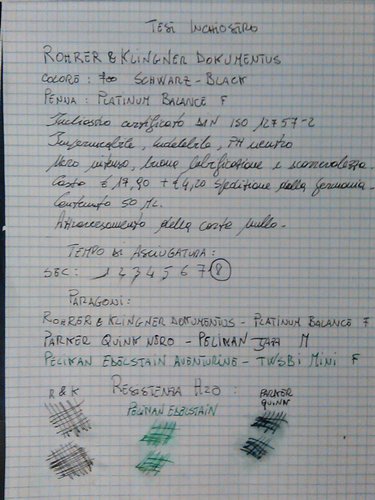 TEST INCHIOSTRO
ROHRER & KLINGNER DOKUMENTUS
COLORE : 700 SCHWARZ - BLACK
PENNA : PLATINUM BALANCE F
Inchiostro certificato DIN ISO 12757-2
Impermeabile, indelebile, PH neutro
Nero intenso, buona lubrificazione e scorrevolezza.
Costo € 17,90 + € 4,20 spedizione dalla Germania.
Contenuto 50 ML.
Attraversamento della carta nullo.
TEMPO DI ASCIUGATURA :
SEC : 1 2 3 4 5 6 7 8
PARAGONI :
ROHRER & KLINGNER DOKUMENTUS - PLATINUM BALANCE F
PARKER QUINK NERO - PELIKAN JAZZ M
PELIKAN EDELSTAIN AVENTURINE - TWSBI MINI F
RESISTENZA H2O :
R & K
PELIKAN EDELSTAIN
PARKER QUINK